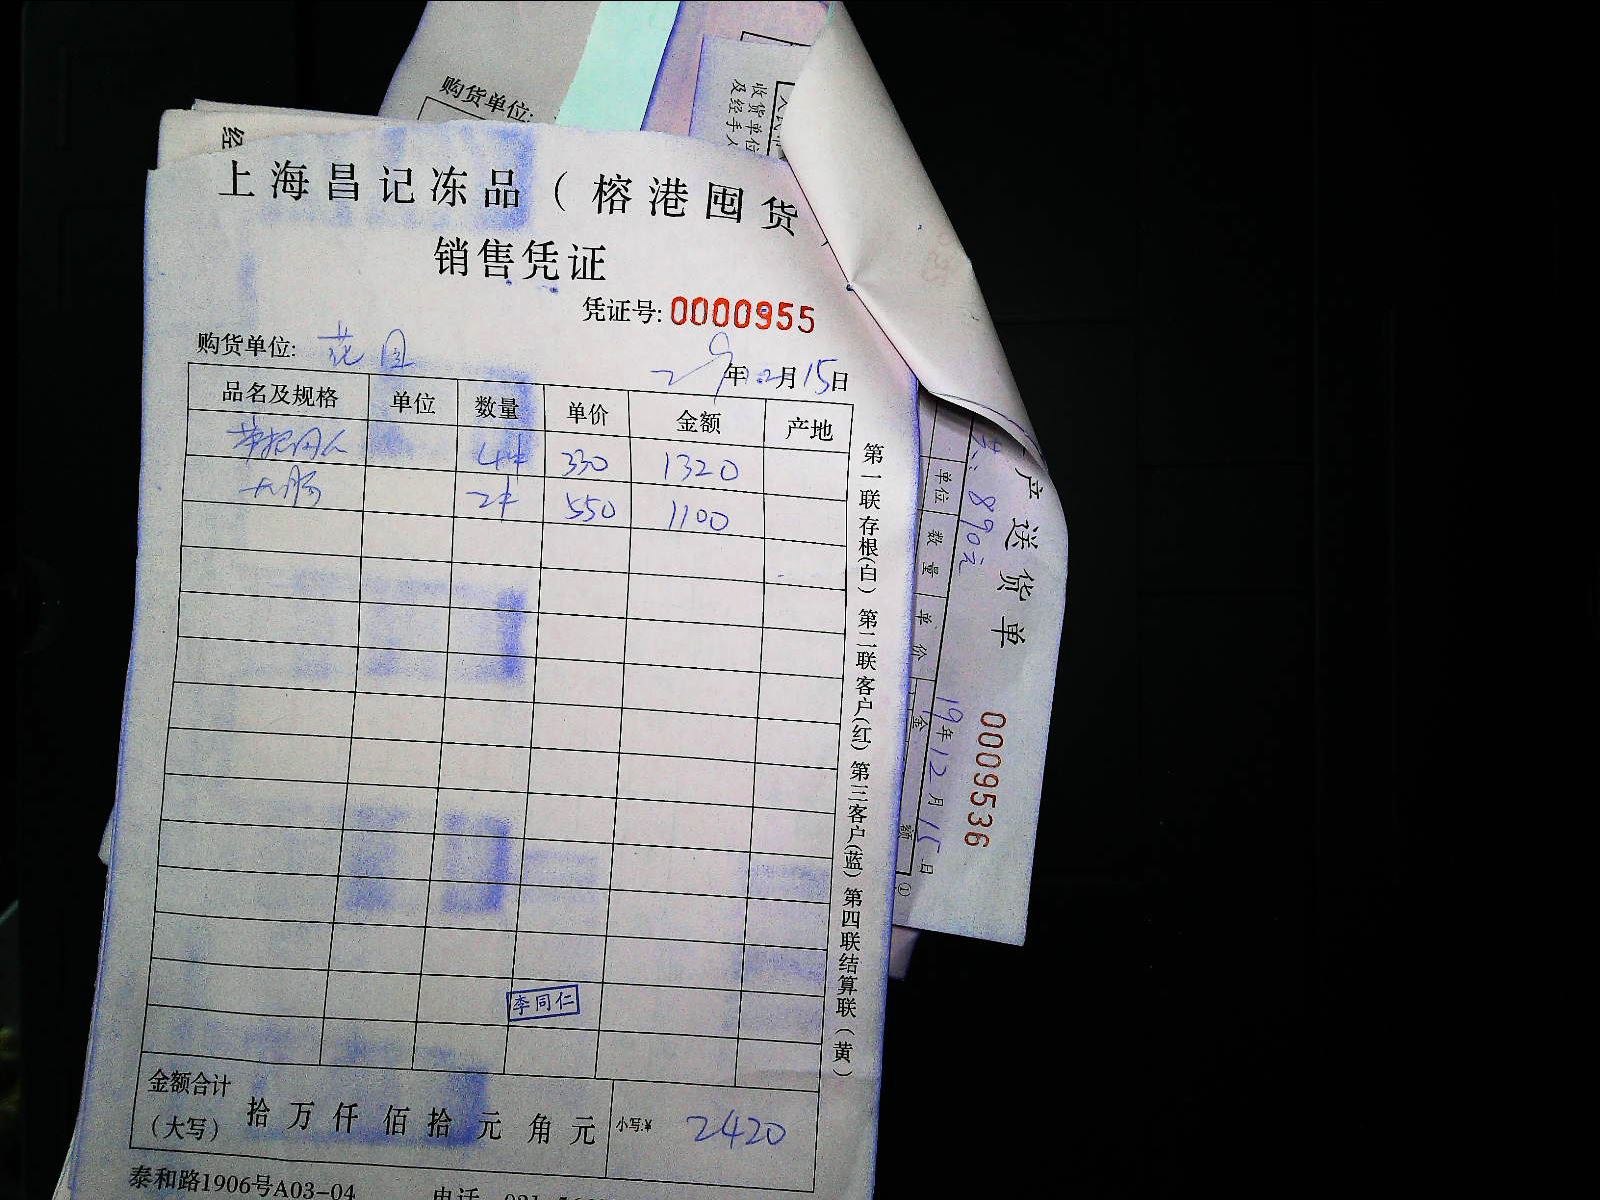 购货单位:
收货单位
及经手人
经
上海昌记冻品（榕港囤货）
销售凭证
凭证号: 0000955
购货单位: 花园
年12月15日
品名及规格 单位 数量 单价 金额 产地
4件 330 1320
大肠 2件 550 1100
李同仁
金额合计
（大写） 拾 万 仟 佰 拾 元 角 元 小写:¥ 2420
泰和路1906号A03-04 电话
第一联存根(白) 第二联客户(红) 第三客户(蓝) 第四联结算联（黄）
产送货单 0009536
890元 19年12月15日
单位 数量 单价 金额 ①